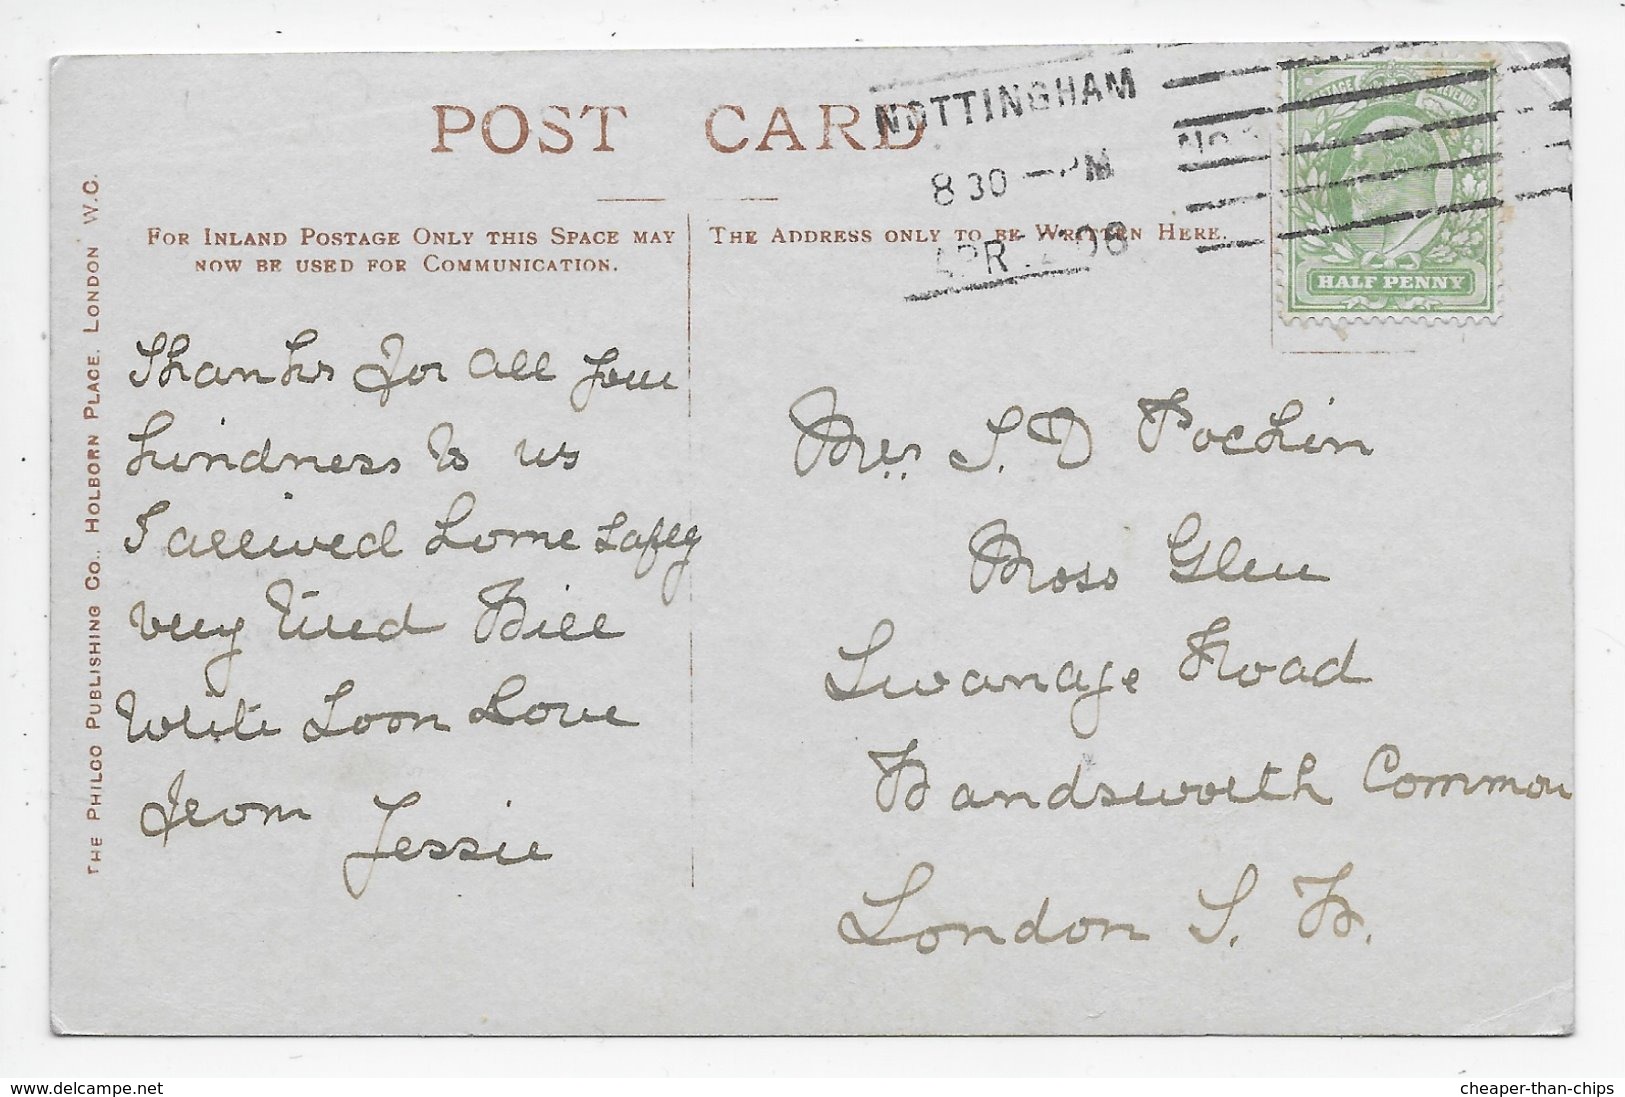 POST CARD
NOTTINGHAM
8 30 PM
APR 08
POSTAGE REVENUE
HALF PENNY
FOR INLAND POSTAGE ONLY THIS SPACE MAY
NOW BE USED FOR COMMUNICATION.
THE ADDRESS ONLY TO BE WRITTEN HERE.
THE PHILCO PUBLISHING CO., HOLBORN PLACE, LONDON W.C.
Thanks for all your
kindness to us
I arrived home safely
very tired Will
write soon Love
from Jessie
Mrs S. D Pochin
Ross Glen
Swanage Road
Wandsworth Common
London S. W.
www.delcampe.net
cheaper-than-chips